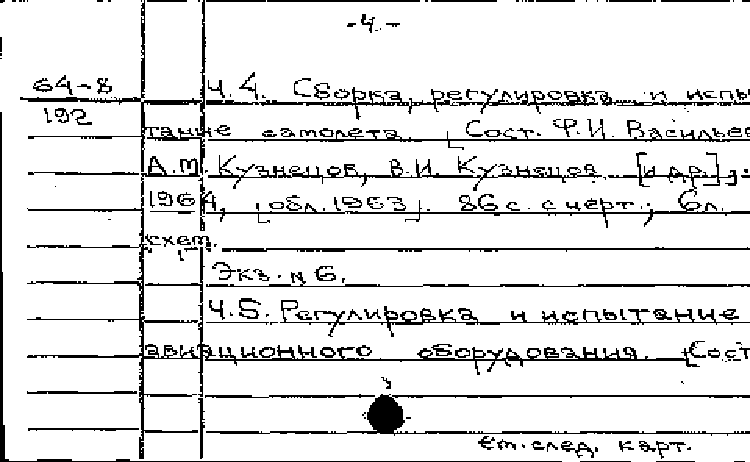 -4.-
64-8
192
Ч.4. Сборка, регулировка и испы
тание самолета. [Сост. Ф.И. Васильев
А.М. Кузнецов, В.И. Кузнецов [и др.],.
1964, [обл. 1963]. 86 с. с черт.; 6 л.
схем.
Экз. № 6.
Ч.5. Регулировка и испытание
авиационного оборудования. [Сост
См. след. карт.